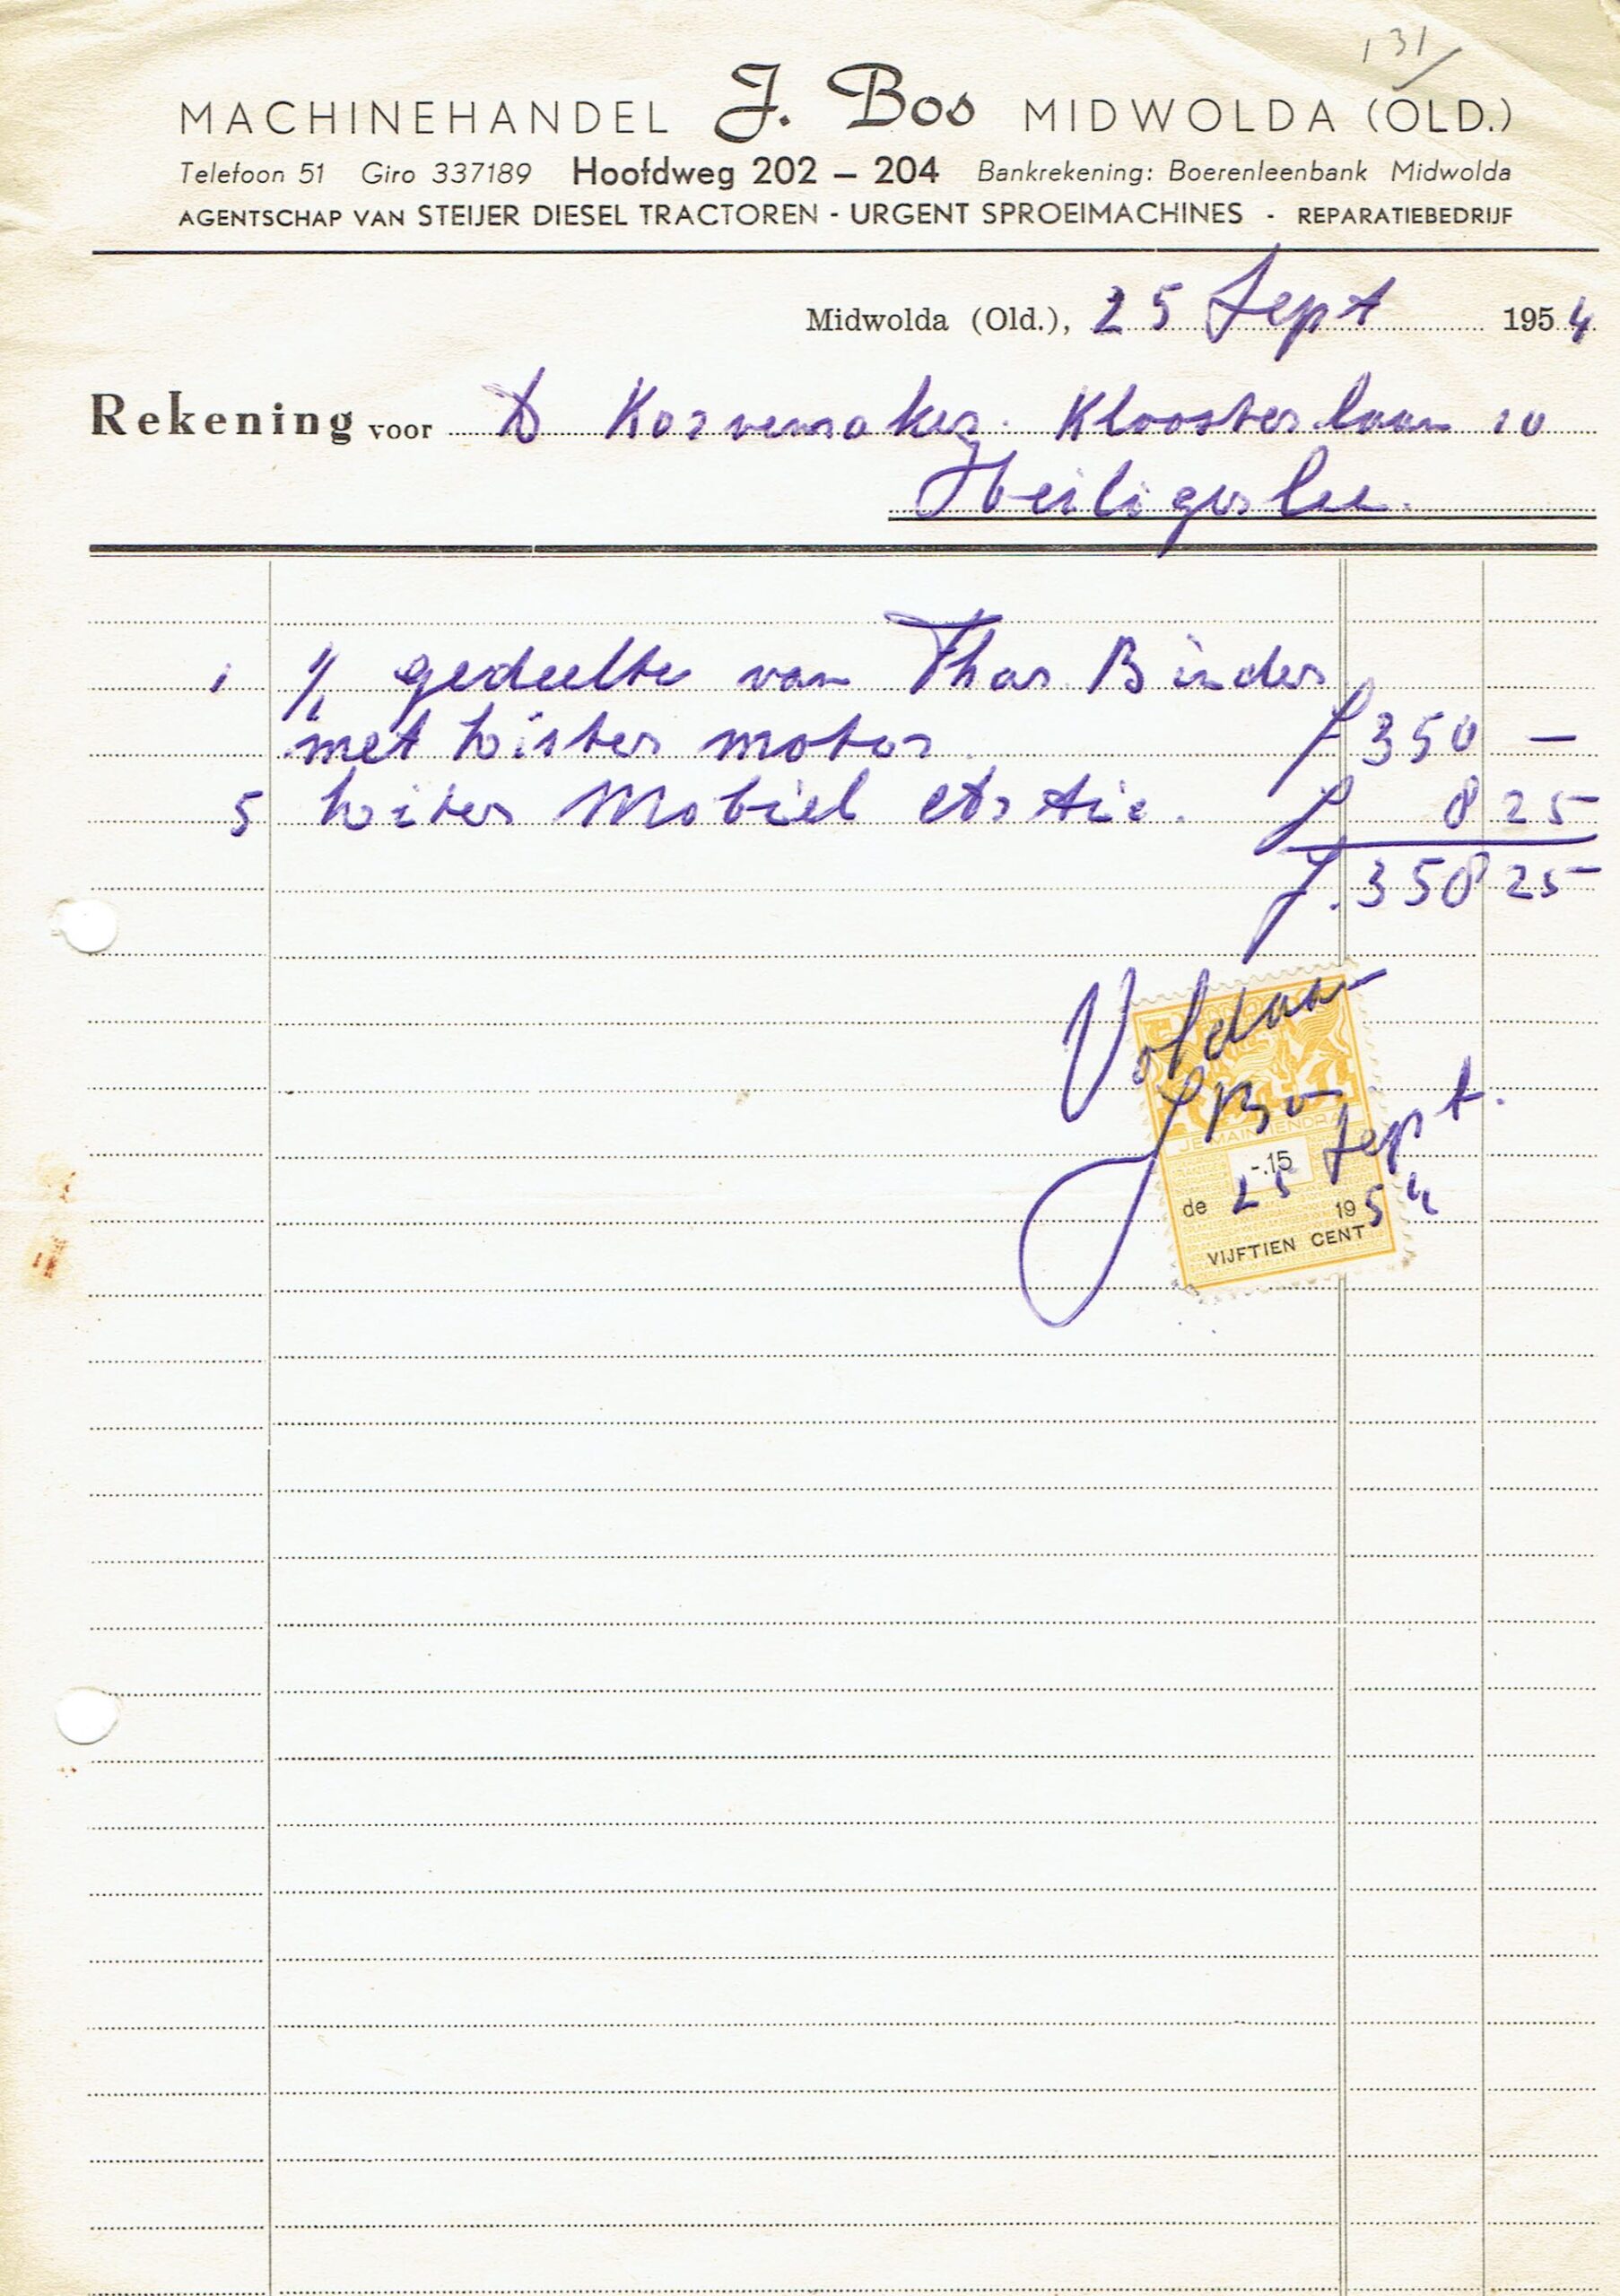 131/
MACHINEHANDEL J. Bos MIDWOLDA (OLD.)
Telefoon 51 Giro 337189 Hoofdweg 202 – 204 Bankrekening: Boerenleenbank Midwolda
AGENTSCHAP VAN STEIJER DIESEL TRACTOREN - URGENT SPROEIMACHINES - REPARATIEBEDRIJF
Midwolda (Old.), 25 Sept 1954
Rekening voor D Korvemaker. Kloosterlaan 10
Heiligerlee.
1 gedeelte van Thor Binder
met Lister motor f 350 —
5 Liter Mobiel f 8 25
f. 358 25
Voldaan
J Bos
-.15
25 Sept.
de 1954
VIJFTIEN CENT